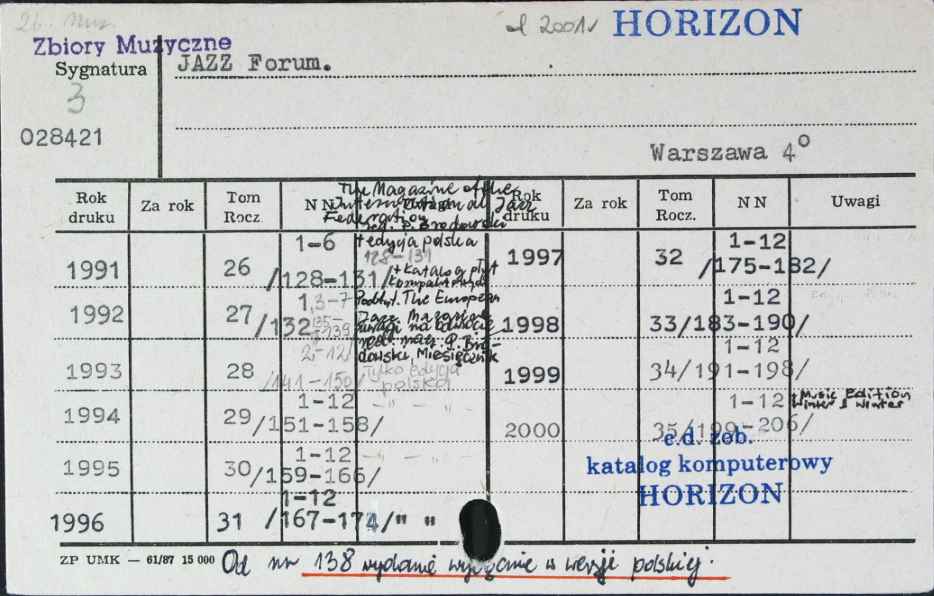 od 2001r HORIZON
Zbiory Muzyczne
Sygnatura
JAZZ Forum.
3
028421
Warszawa 4°
Rok druku Za rok Tom Rocz. NN Uwagi Rok druku Za rok Tom Rocz. NN Uwagi
The Magazine of the
International Jazz
Federation
red. P. Brodowski
1991 26 1-6 /128-131/ + edycja polska
128-131
+ katalog płyt
kompaktowych
1992 27 1,3-7 /132,135-139 Podtyt. The European
Jazz Magazine
uwagi na odwrocie
red. nacz. P. Bro-
dowski, Miesięcznik
1993 28 2-12/ /141-150/ Tylko edycja
polska
1994 29 1-12 /151-158/ " "
1995 30 1-12 /159-166/
1996 31 1-12 /167-174/ " "
1997 32 1-12 /175-182/
1998 33 1-12 /183-190/
1999 34 1-12 /191-198/
2000 35 1-12 /199-206/ Music Edition
Winter & Winter
c.d. zob.
katalog komputerowy
HORIZON
ZP UMK — 61/87 15 000
Od nr 138 wydanie wyłącznie w wersji polskiej.